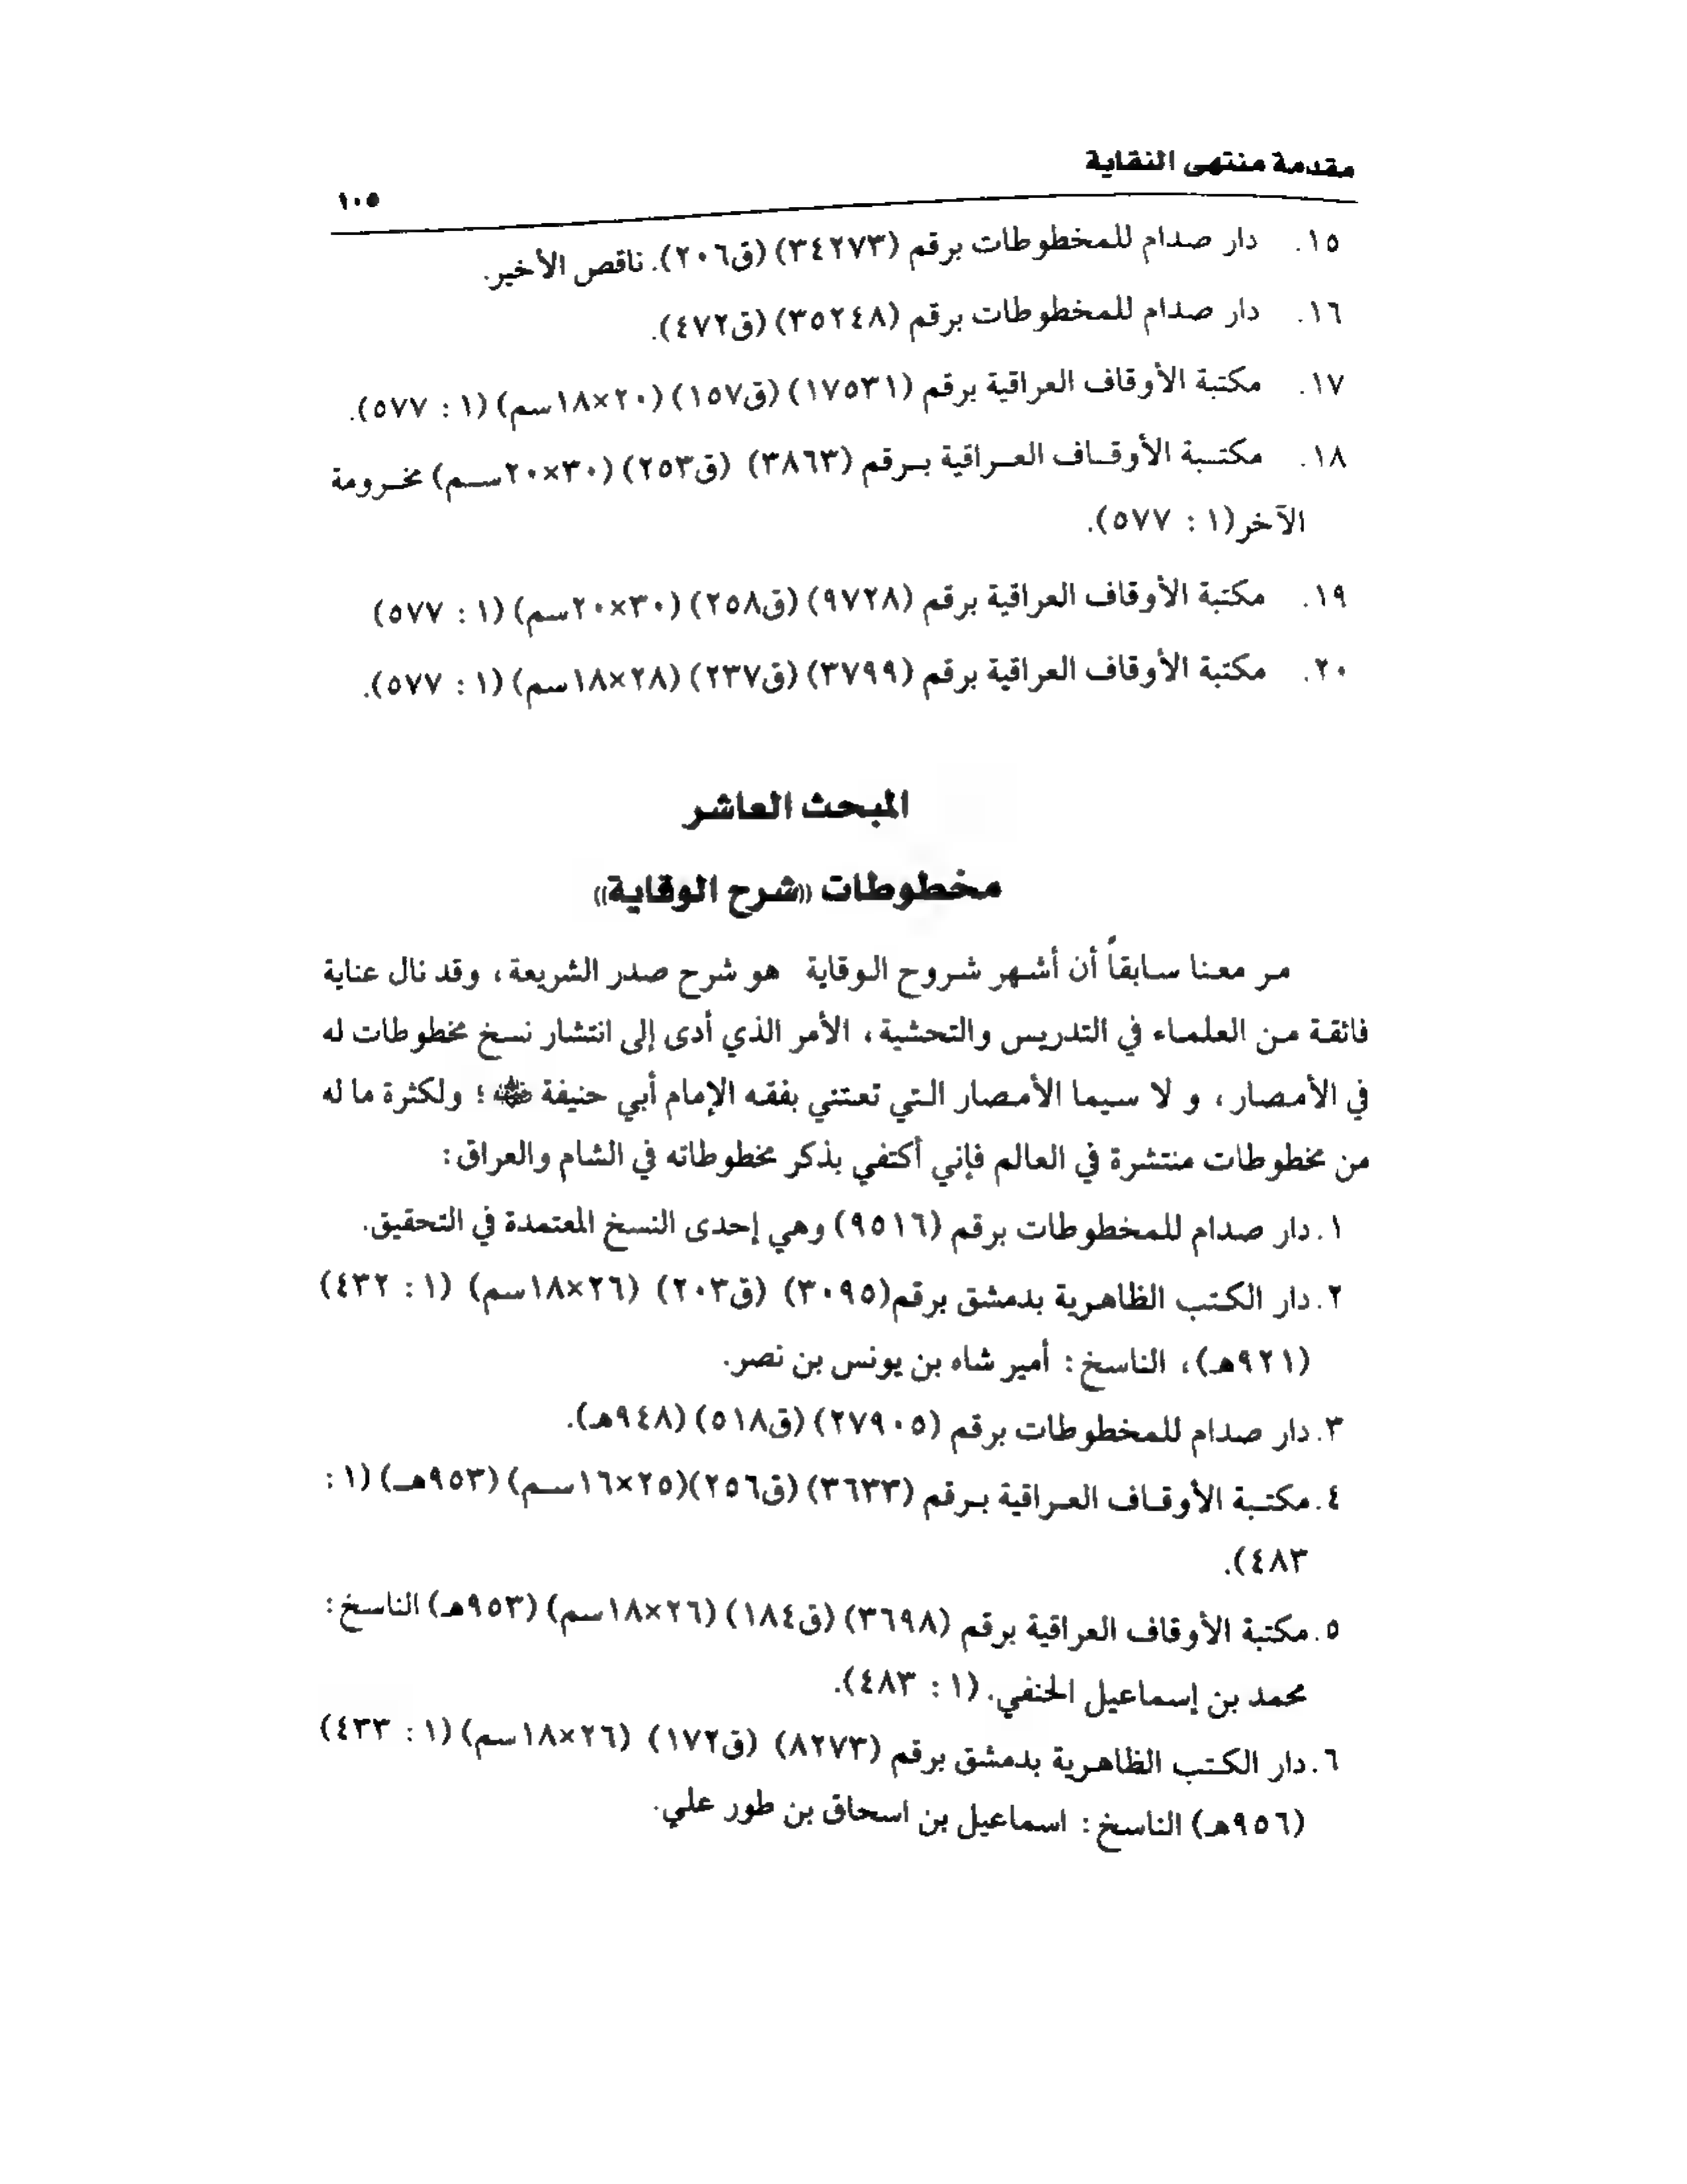 مقدمة منتهى النقاية
١٠٥
١٥. دار صدام للمخطوطات برقم (٣٤٢٧٣) (ق٢٠٦). ناقص الأخير.
١٦. دار صدام للمخطوطات برقم (٣٥٢٤٨) (ق٤٧٢).
١٧. مكتبة الأوقاف العراقية برقم (١٧٥٣١) (ق١٥٧) (٢٠×١٨سم) (١ : ٥٧٧).
١٨. مكتبة الأوقاف العراقية برقم (٣٨٦٣) (ق٢٥٣) (٣٠×٢٠سم) مخرومة
الآخر(١ : ٥٧٧).
١٩. مكتبة الأوقاف العراقية برقم (٩٧٢٨) (ق٢٥٨) (٣٠×٢٠سم) (١ : ٥٧٧)
٢٠. مكتبة الأوقاف العراقية برقم (٣٧٩٩) (ق٢٣٧) (٢٨×١٨سم) (١ : ٥٧٧).
المبحث العاشر
مخطوطات ((شرح الوقاية))
مر معنا سابقاً أن أشهر شروح الوقاية هو شرح صدر الشريعة، وقد نال عناية
فائقة من العلماء في التدريس والتحشية، الأمر الذي أدى إلى انتشار نسخ مخطوطات له
في الأمصار، و لا سيما الأمصار التي تعتني بفقه الإمام أبي حنيفة ﷺ؛ ولكثرة ما له
من مخطوطات منتشرة في العالم فإني أكتفي بذكر مخطوطاته في الشام والعراق:
١. دار صدام للمخطوطات برقم (٩٥١٦) وهي إحدى النسخ المعتمدة في التحقيق.
٢. دار الكتب الظاهرية بدمشق برقم(٣٠٩٥) (ق٢٠٣) (٢٦×١٨سم) (١ : ٤٣٢)
(٩٢١هـ)، الناسخ: أمير شاه بن يونس بن نصر.
٣. دار صدام للمخطوطات برقم (٢٧٩٠٥) (ق٥١٨) (٩٤٨هـ).
٤. مكتبة الأوقاف العراقية برقم (٣٦٣٣) (ق٢٥٦)(٢٥×١٦سم) (٩٥٣هـ) (١ :
٤٨٣).
٥. مكتبة الأوقاف العراقية برقم (٣٦٩٨) (ق١٨٤) (٢٦×١٨سم) (٩٥٣هـ) الناسخ:
محمد بن إسماعيل الحنفي. (١ : ٤٨٣).
٦. دار الكتب الظاهرية بدمشق برقم (٨٢٧٣) (ق١٧٢) (٢٦×١٨سم) (١ : ٤٣٣)
(٩٥٦هـ) الناسخ: اسماعيل بن اسحاق بن طور علي.